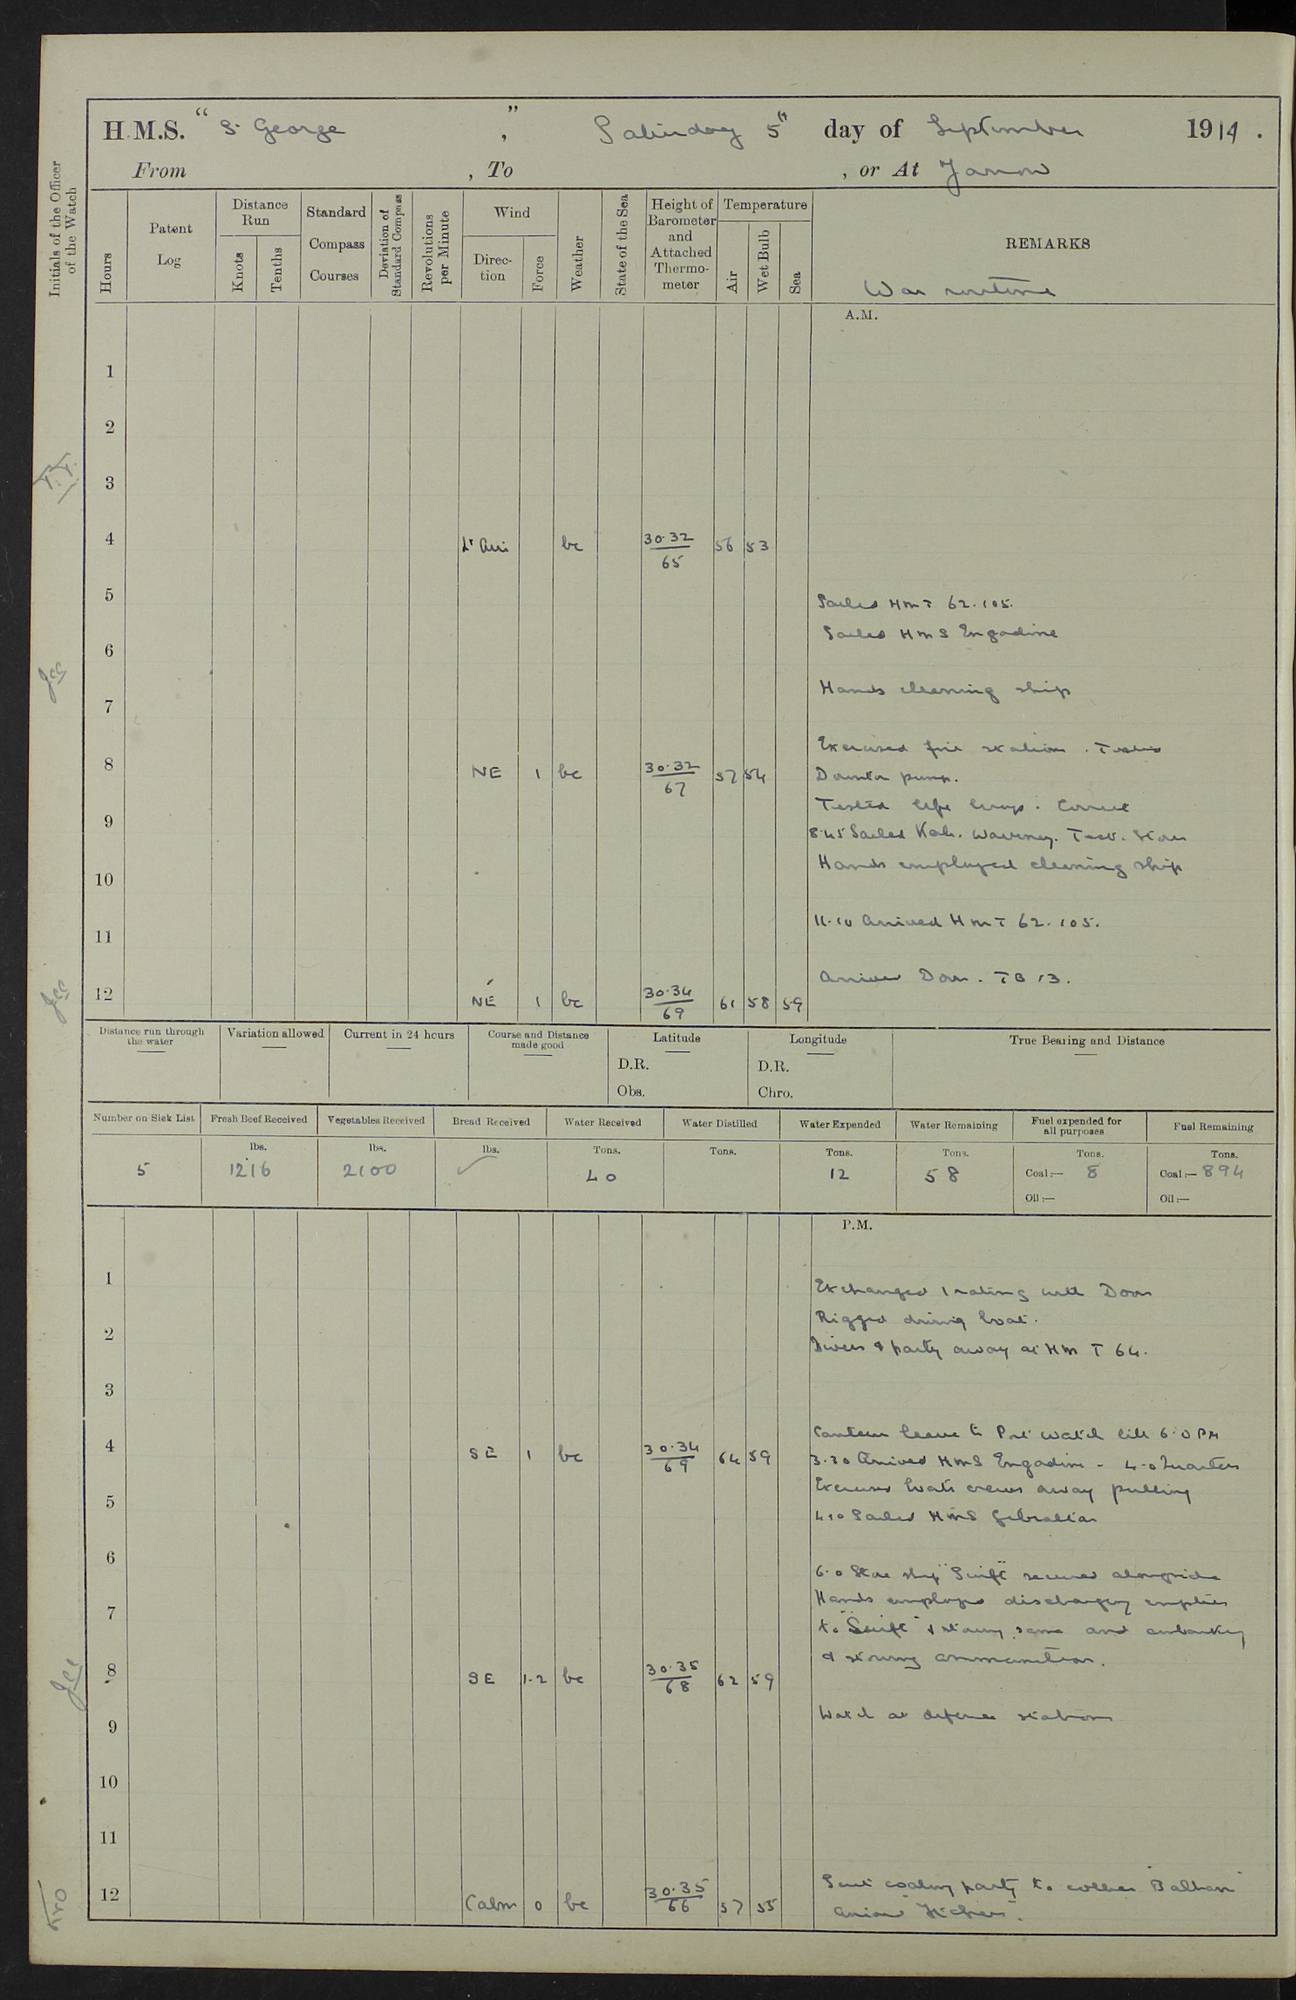 H.M.S. "St George", Saturday 5th day of September 1914.
From , To , or At Yarrow
Initials of the Officer of the Watch
Hours
Patent Log
Distance Run
Knots
Tenths
Standard Compass Courses
Deviation of Standard Compass
Revolutions per Minute
Wind
Direction
Force
Weather
State of the Sea
Height of Barometer and Attached Thermometer
Temperature
Air
Wet Bulb
Sea
REMARKS
War routine
A.M.
1
2
3
4 Lt Airs bc 30.32 65 56 53
5
Sailed HMT 62.105.
Sailed HMS Engadine
6
Hands cleaning ship
7
Exercised fire stations. Tested
8 NE 1 bc 30.32 67 57 54
Downton pump.
Tested life buoys. Correct
9
8.45 Sailed Kale. Waveney. Test. Stour
Hands employed cleaning ship
10
11.10 Arrived HMT 62.105.
11
Arrived Doon. TB 13.
12 NE 1 bc 30.34 69 61 58 59
Distance run through the water
Variation allowed
Current in 24 hours
Course and Distance made good
Latitude
D.R.
Obs.
Longitude
D.R.
Chro.
True Bearing and Distance
Number on Sick List
Fresh Beef Received
Vegetables Received
Bread Received
Water Received
Water Distilled
Water Expended
Water Remaining
Fuel expended for all purposes
Fuel Remaining
lbs. lbs. lbs. Tons. Tons. Tons. Tons. Tons. Tons.
5 1216 2100 40 12 58 Coal:— 8 Coal:— 894
Oil:— Oil:—
P.M.
1
Exchanged 1 rating with Doon
Rigged diving boat.
2
Divers & party away at HM T 64.
3
Canteen leave to Port watch till 6.0 PM
4 SE 1 bc 30.34 69 64 59
3.30 Arrived HMS Engadine - 4.0 Quarters
Exercised boats crews away pulling
5
4.10 Sailed HMS Gibraltar
6
6.0 Store ship "Swift" secured alongside
Hands employed discharging empties
7
to "Swift" & storing same and embarking
& storing ammunition.
8 SE 1.2 bc 30.35 68 62 59
Watch at defence stations
9
10
11
12 Calm 0 bc 30.35 66 57 55
Sent coaling party to collier "Balhan"
Arrived